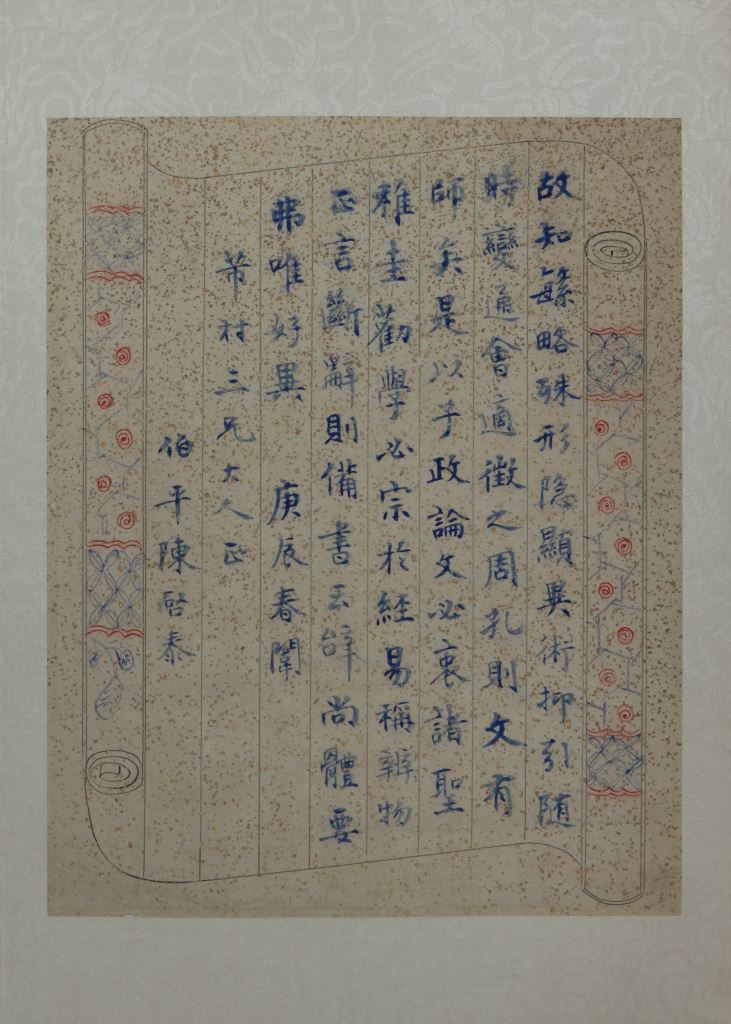 故知繁略殊形隐顯異術抑引随
時變通會適徵之周孔則文有
師矣是以子政論文必衷諸聖
稚圭勸學必宗於経易稱辨物
正言斷辭則備書云辝尚體要
弗唯好異　庚辰春闈
芾村三兄大人正
伯平陳啓泰